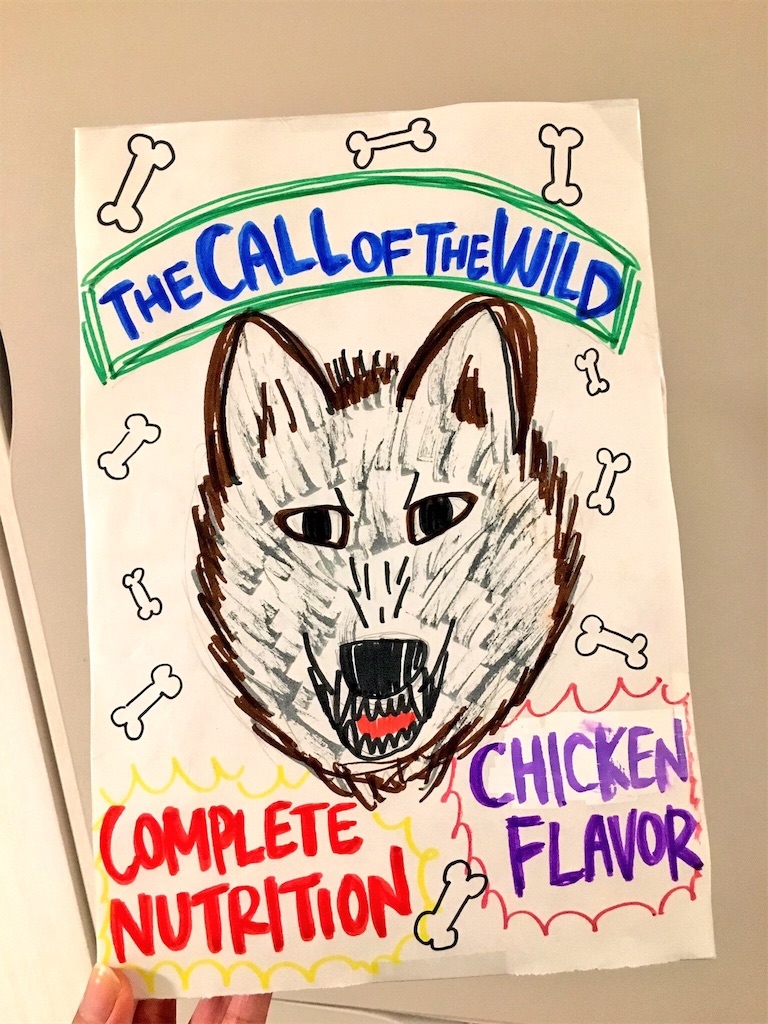 THE CALL OF THE WILD
CHICKEN
FLAVOR
COMPLETE
NUTRITION